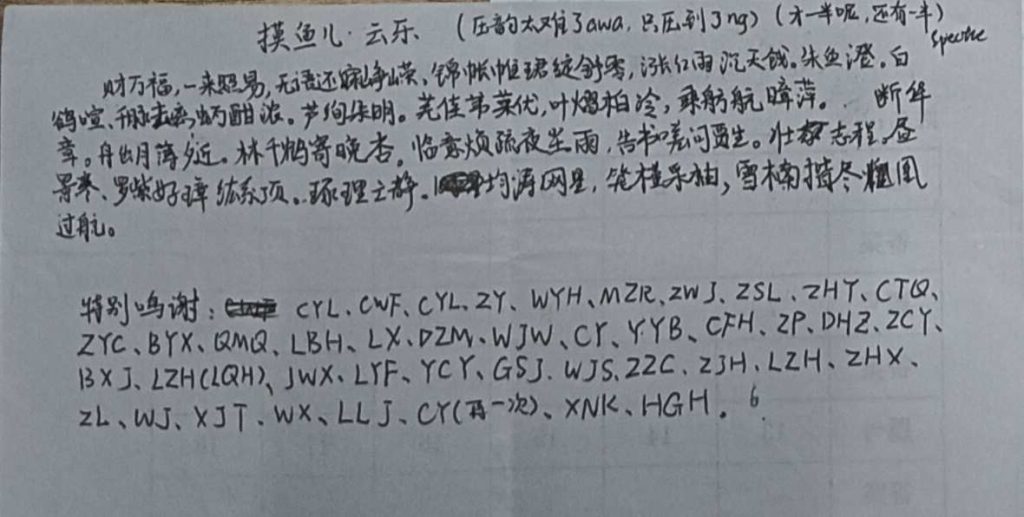 摸鱼儿·云乐 (压韵太难了awa,只压到了ng) (才一半呢,还有一半)
spectre
财万福,一来照易,无语还婉峥嵘、锦帐恒珺绽舒零,涨红雨沉天饿。朱鱼澄。白
鸽喧、酣浓。芦绚朱明。芜佳苇莱优,叶熠柏冷,乘舫航暐萍。 断华
章。舟出月薄夕近。林千鹤寄晚杏。临意烦疏夜坐雨,告书嗟问贾生。壮志程。昼
寒、罗紫好璋。琢理立静。均涛网星,笔植乐袖,雪楠揩冬粗凰
过航。
特别鸣谢: CYL、CWF、CYL、ZY、WYH、MZR、ZWJ、ZSL、ZHY、CTQ、
ZYC、BYX、QMQ、LBH、LX、DZM、WJW、CY、YYB、CFH、ZP、DHZ、ZCY、
BXJ、LZH(LQH)、JWX、LYF、YCY、GSJ、WJS、ZZC、ZJH、LZH、ZHX、
ZL、WJ、XJT、WX、LLJ、CY(再一次)、XNK、HGH。6